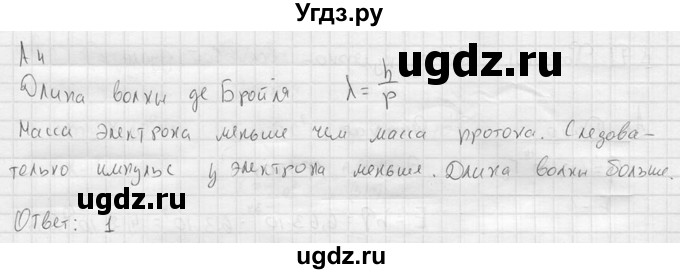 Угдз.ру
А4
Длина волны де Бройля λ = h/p
Масса электрона меньше чем масса протона. Следова-
только импульс у электрона меньше. Длина волны больше.
Ответ: 1
ugdz.ru
ugdz.ru
ugdz.ru
ugdz.ru
ugdz.ru